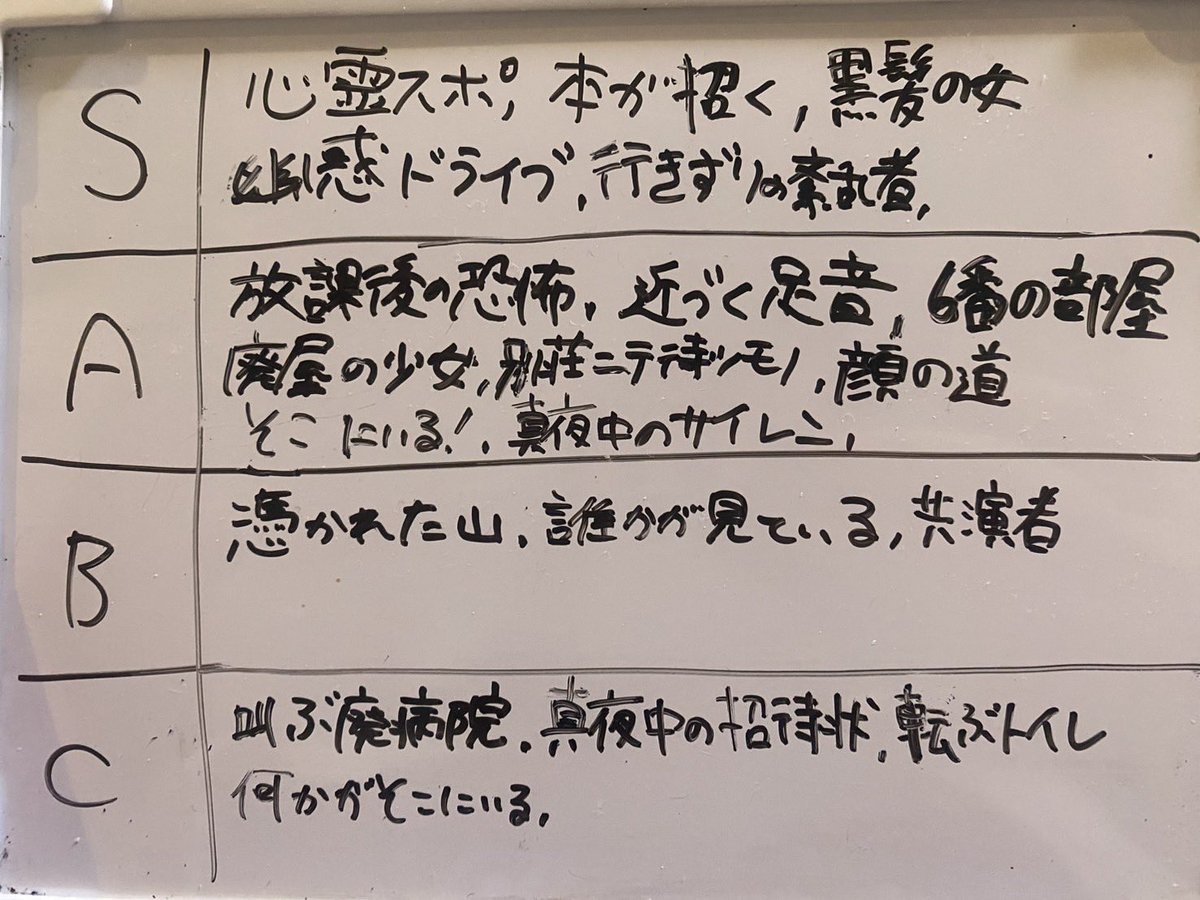 S
心霊スポ, 本が招く, 黒髪の女
幽惑ドライブ, 行きずりの紊乱者,
A
放課後の恐怖, 近づく足音, 6番の部屋
廃屋の少女, 別荘ニテ待ツモノ, 顔の道
そこにいる!, 真夜中のサイレン,
B
憑かれた山, 誰かが見ている, 共演者
C
叫ぶ廃病院, 真夜中の招待状, 転ぶトイレ
何かがそこにいる,